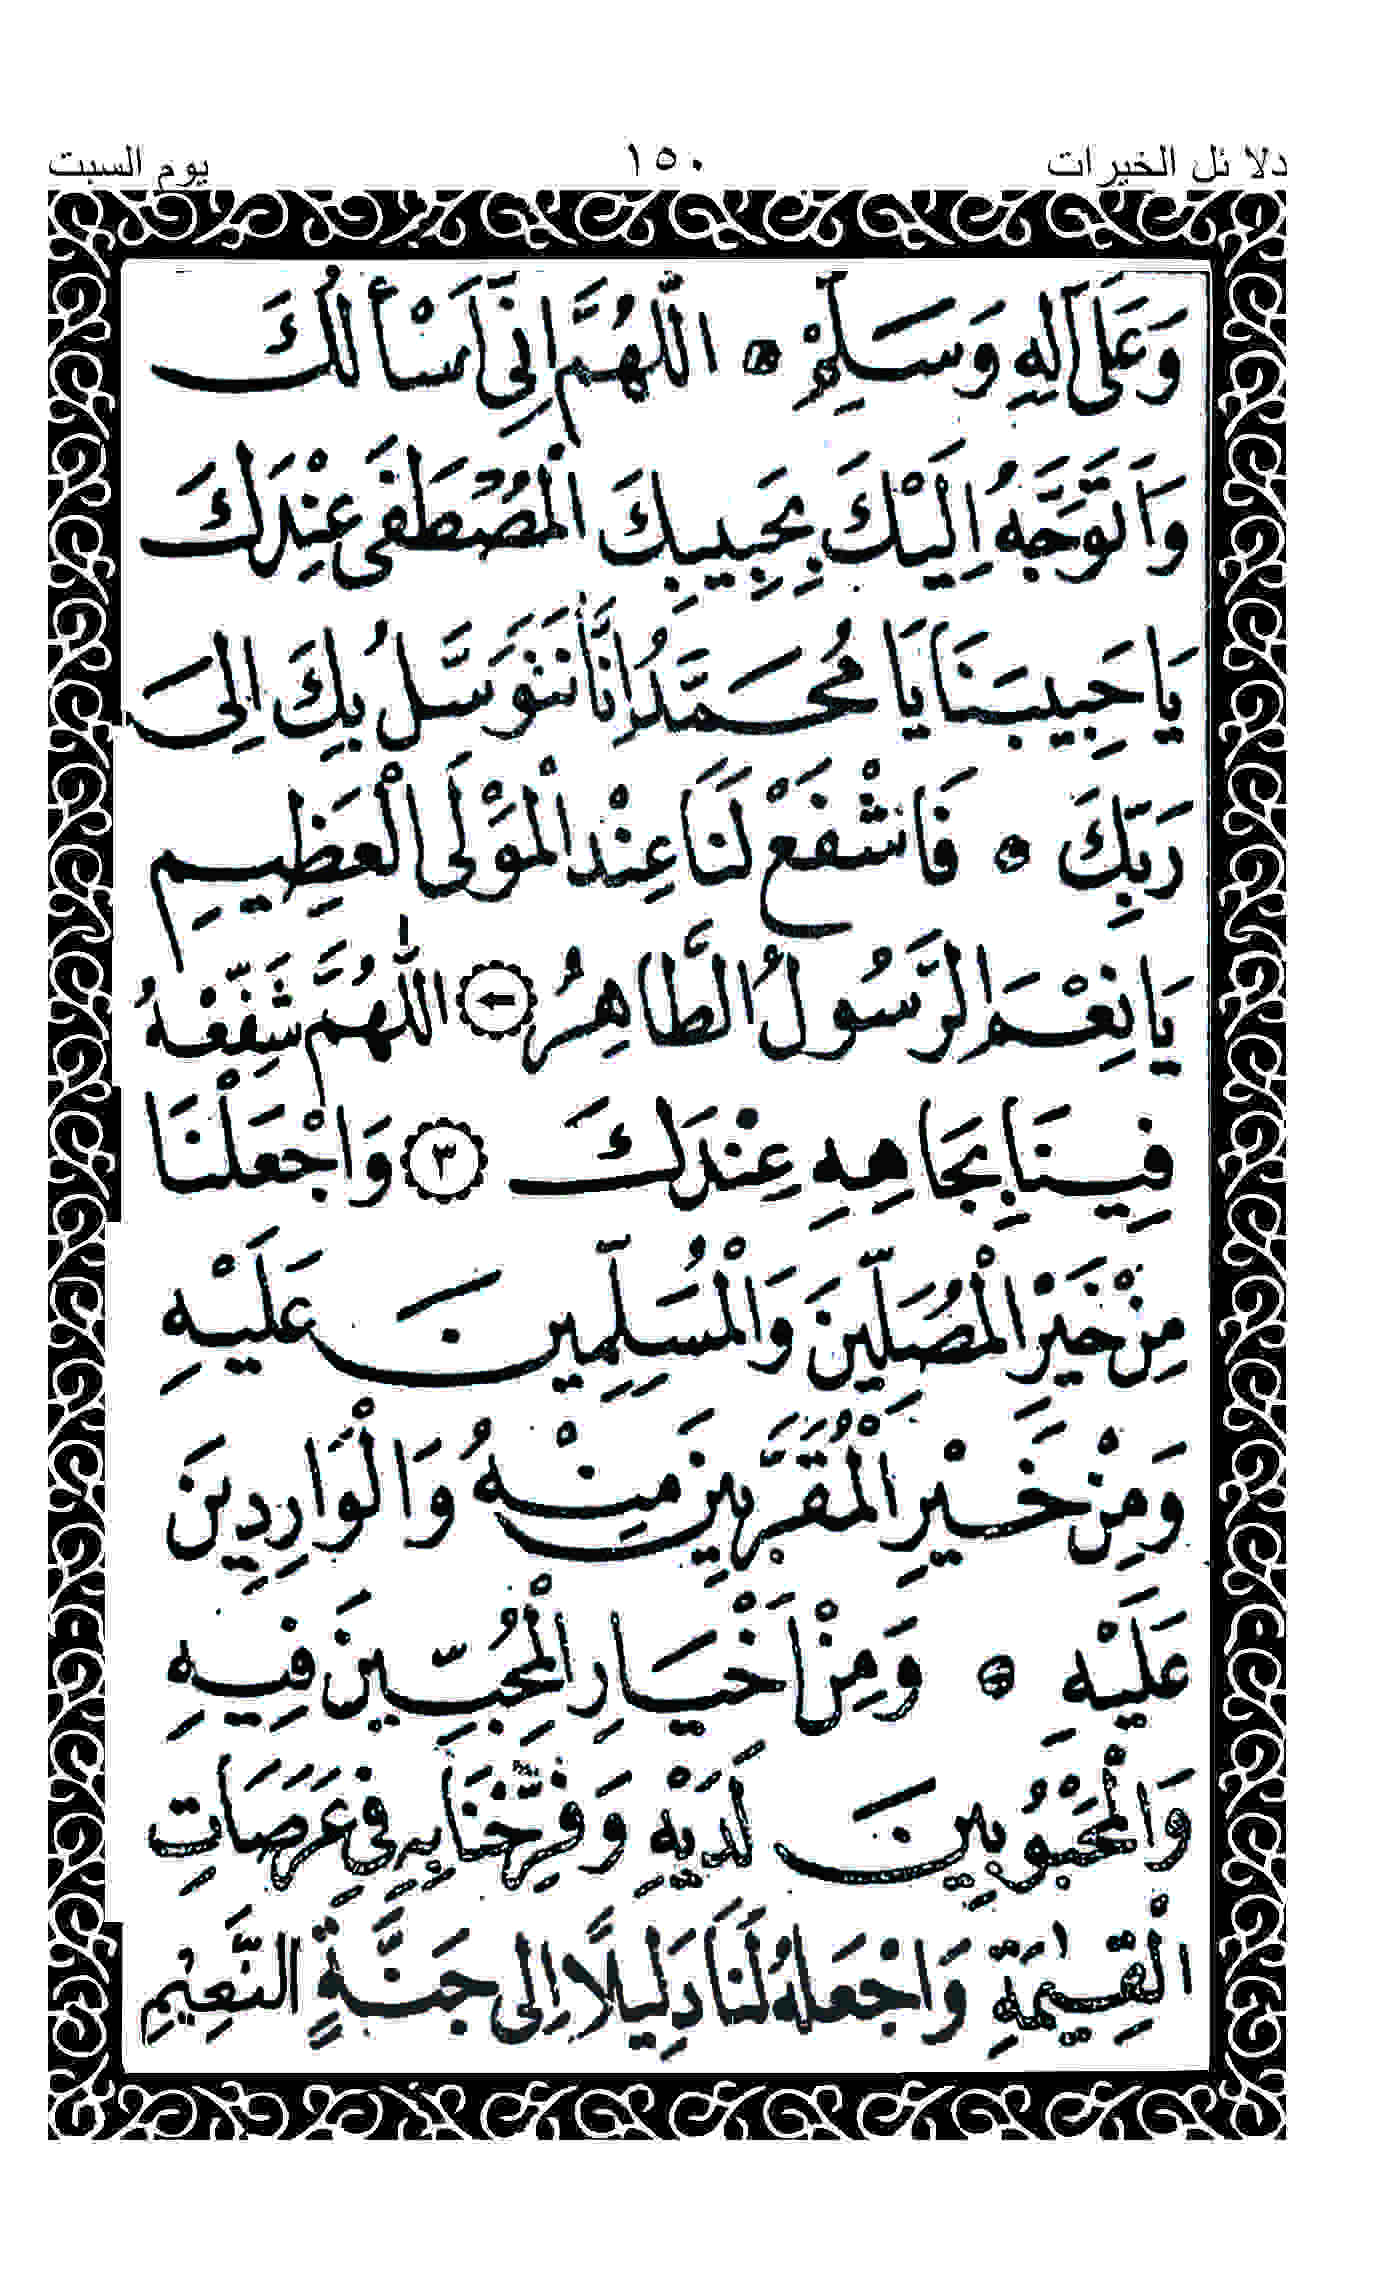 دلا ئل الخيرات ١٥٠ يوم السبت
وَعَلَى آلِهِ وَسَلِّمْ ۞ اَللّٰهُمَّ اِنِّى اَسْأَلُكَ
وَاَتَوَجَّهُ اِلَيْكَ بِحَبِيبِكَ الْمُصْطَفَى عِنْدَكَ
يَا حَبِيبَنَا يَا مُحَمَّدُ اِنَّا نَتَوَسَّلُ بِكَ اِلَى
رَبِّكَ ۞ فَاشْفَعْ لَنَا عِنْدَ الْمَوْلَى الْعَظِيمِ
يَا نِعْمَ الرَّسُولُ الطَّاهِرُ ← اَللّٰهُمَّ شَفِّعْهُ
فِينَا بِجَاهِهِ عِنْدَكَ ٣ وَاجْعَلْنَا
مِنْ خَيْرِ الْمُصَلِّينَ وَالْمُسَلِّمِينَ عَلَيْهِ
وَمِنْ خَيْرِ الْمُقَرَّبِينَ مِنْهُ وَالْوَارِدِينَ
عَلَيْهِ ۞ وَمِنْ اَخْيَارِ الْمُحِبِّينَ فِيهِ
وَالْمَحْبُوبِينَ لَدَيْهِ وَفَرِّحْنَا بِهِ فِى عَرَصَاتِ
الْقِيٰمَةِ وَاجْعَلْهُ لَنَا دَلِيلًا اِلَى جَنَّةِ النَّعِيمِ